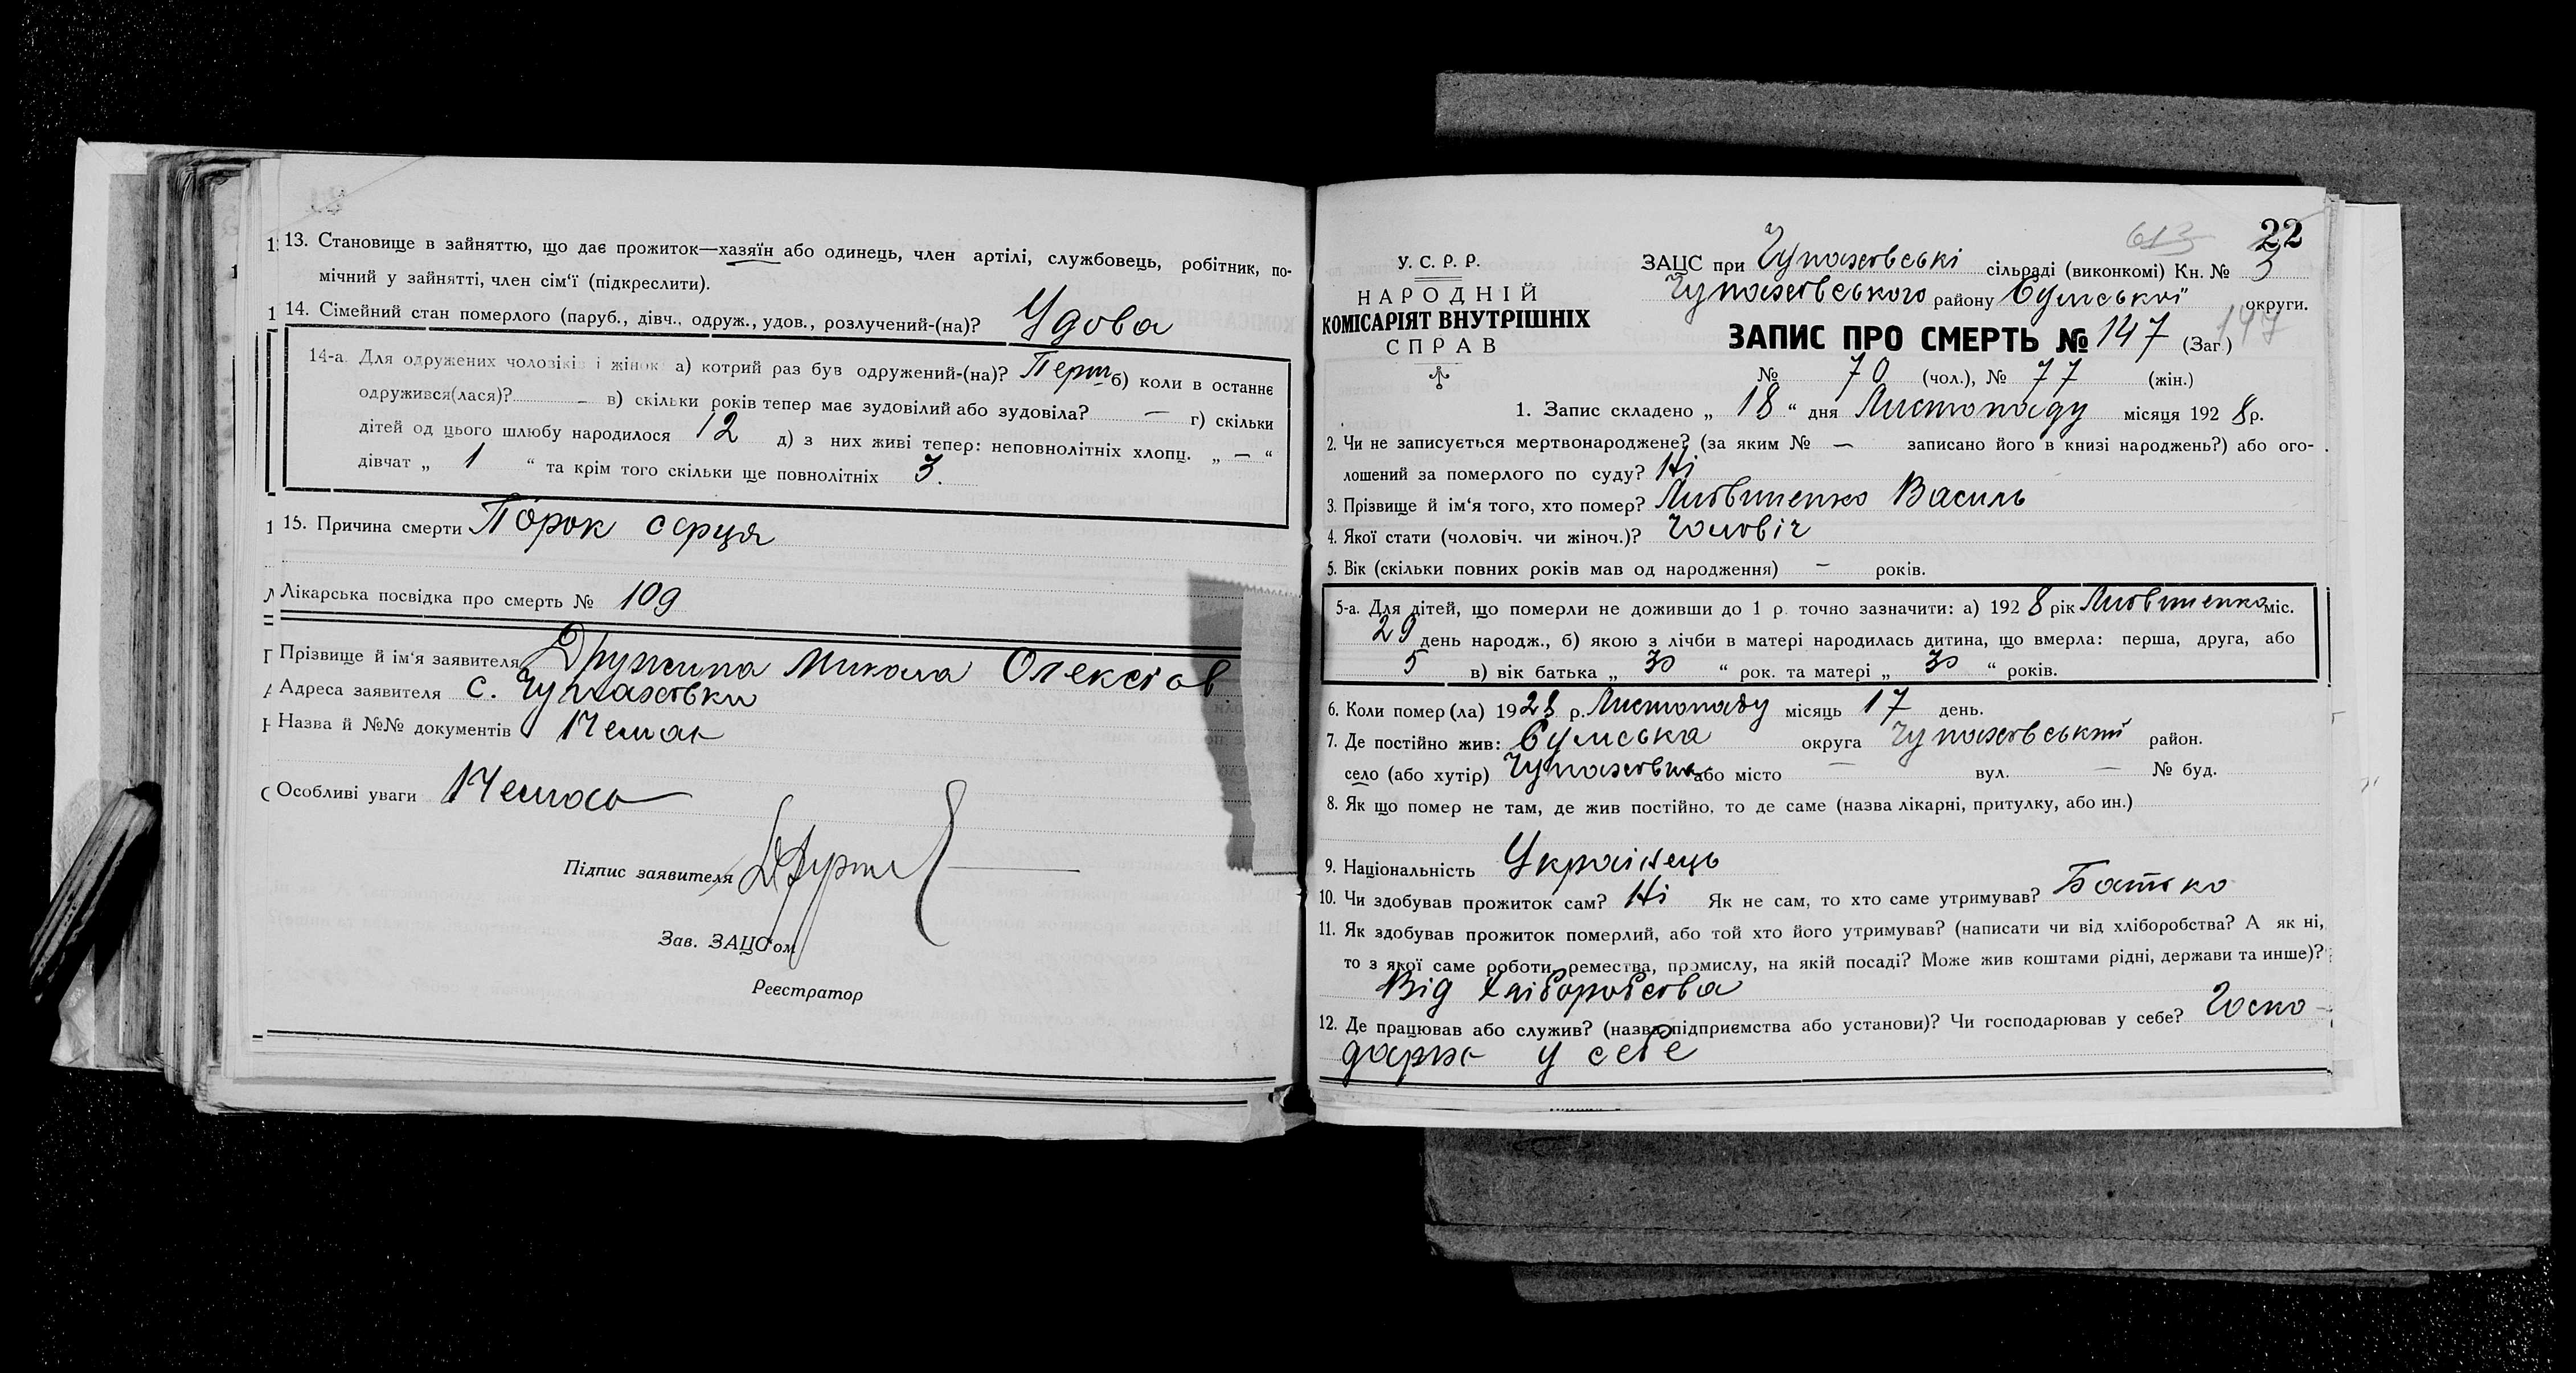 13. Становище в зайняттю, що дає прожиток—хазяїн або одинець, член артілі, службовець, робітник, по-
мічний у зайнятті, член сім'ї (підкреслити).
14. Сімейний стан померлого (паруб., дівч., одруж., удов., розлучений-(на)? Удова
14-а. Для одружених чоловіків і жінок а) котрий раз був одружений-(на)? Перш б) коли в останнє
одружився(лася)? — в) скільки років тепер має зудовілий або зудовіла? — г) скільки
дітей од цього шлюбу народилося 12 д) з них живі тепер: неповнолітніх хлопц. „ — “
дівчат „ 1 “ та крім того скільки ще повнолітніх 3.
15. Причина смерти Порок серця
Лікарська посвідка про смерть № 109
Прізвище й ім'я заявителя Дружина Микола Олексієв
Адреса заявителя с. Чупаховки
Назва й №№ документів Немає
Особливі уваги Немає
Підпис заявителя
Зав. ЗАЦС'ом
Реєстратор
613 22
У. С. Р. Р.
НАРОДНІЙ
КОМІСАРІЯТ ВНУТРІШНІХ
СПРАВ
ЗАЦС при Чупаховські сільраді (виконкомі) Кн. № 3
Чупаховського району Сумської округи.
ЗАПИС ПРО СМЕРТЬ № 147 (Заг.) 147
№ 70 (чол.), № 77 (жін.)
1. Запис складено „ 18 “ дня Листопаду місяця 1928 р.
2. Чи не записується мертвонароджене? (за яким № — записано його в книзі народжень?) або ого-
лошений за померлого по суду? Ні
3. Прізвище й ім'я того, хто помер? Литвиненко Василь
4. Якої стати (чоловіч. чи жіноч.)? Чоловіч
5. Вік (скільки повних років мав од народження) — років.
5-а. Для дітей, що померли не доживши до 1 р. точно зазначити: а) 1928 рік Литвиненко міс.
29 день народж., б) якою з лічби в матері народилась дитина, що вмерла: перша, друга, або
5 в) вік батька „ 30 “ рок. та матері „ 30 “ років.
6. Коли помер(ла) 1928 р. Листопаду місяць 17 день.
7. Де постійно жив: Сумська округа Чупаховський район.
село (або хутір) Чупаховка або місто — вул. — № буд.
8. Як що помер не там, де жив постійно, то де саме (назва лікарні, притулку, або ин.)
9. Національність Українець
10. Чи здобував прожиток сам? Ні Як не сам, то хто саме утримував? Батько
11. Як здобував прожиток померлий, або той хто його утримував? (написати чи від хліборобства? А як ні,
то з якої саме роботи, ремества, промислу, на якій посаді? Може жив коштами рідні, держави та инше)?
Від хліборобства
12. Де працював або служив? (назва підприємства або установи)? Чи господарював у себе? Госпо-
дарює у себе